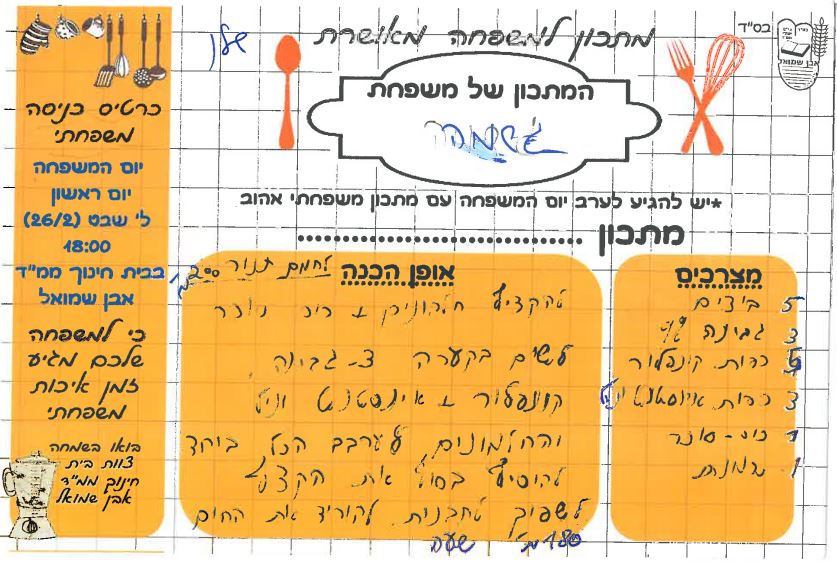 בס"ד
אבן שמואל
מתכון למשפחה מאושרת
המתכון של משפחת
*יש להגיע לערב יום המשפחה עם מתכון משפחתי אהוב
מתכון
מצרכים
5 ביצים
3 גבינה 9%
כפות קונפלור
3 כפות אינסטנט וניל
1 כוס - סוכר
1
אופן הכנה
לחמם תנור 200 מ'
להקציף חלבונים + כוס סוכר
לשים בקערה 3 - גבינה
קונפלור + אינסטנט וניל
והחלמונים לערבב הכל ביחד
להוסיף בסוף את הקצף
לשפוך לתבנית להוריד את החום
180 מ' שעה
כרטיס כניסה
משפחתי
יום המשפחה
יום ראשון
ל' שבט (26/2)
18:00
בבית חינוך ממ"ד
אבן שמואל
כי למשפחה
שלכם מגיע
זמן איכות
משפחתי
בואו בשמחה
צוות בית
חינוך ממ"ד
אבן שמואל